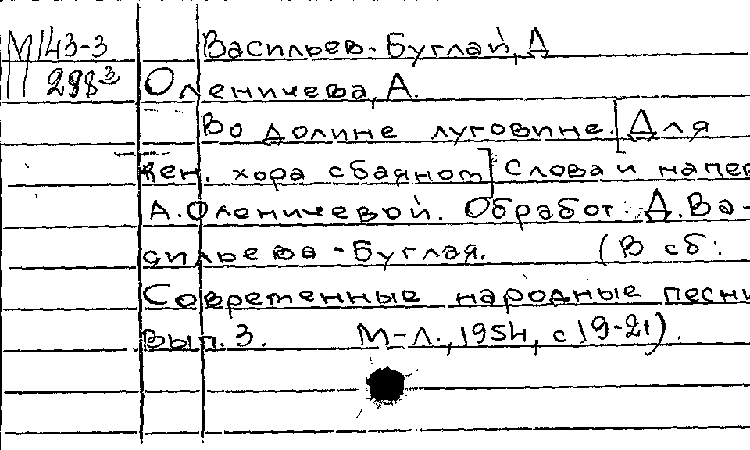 М143-3 Васильев-Буглай, Д
298³ Оленичева, А.
Во долине луговине. [Для
жен. хора сбаяном] Слова и напев
А.Оленичевой. Обработ. Д.Ва-
сильева-Буглая. (В сб:
Современные народные песни
Вып.3. М-Л., 1954, с 19-21).